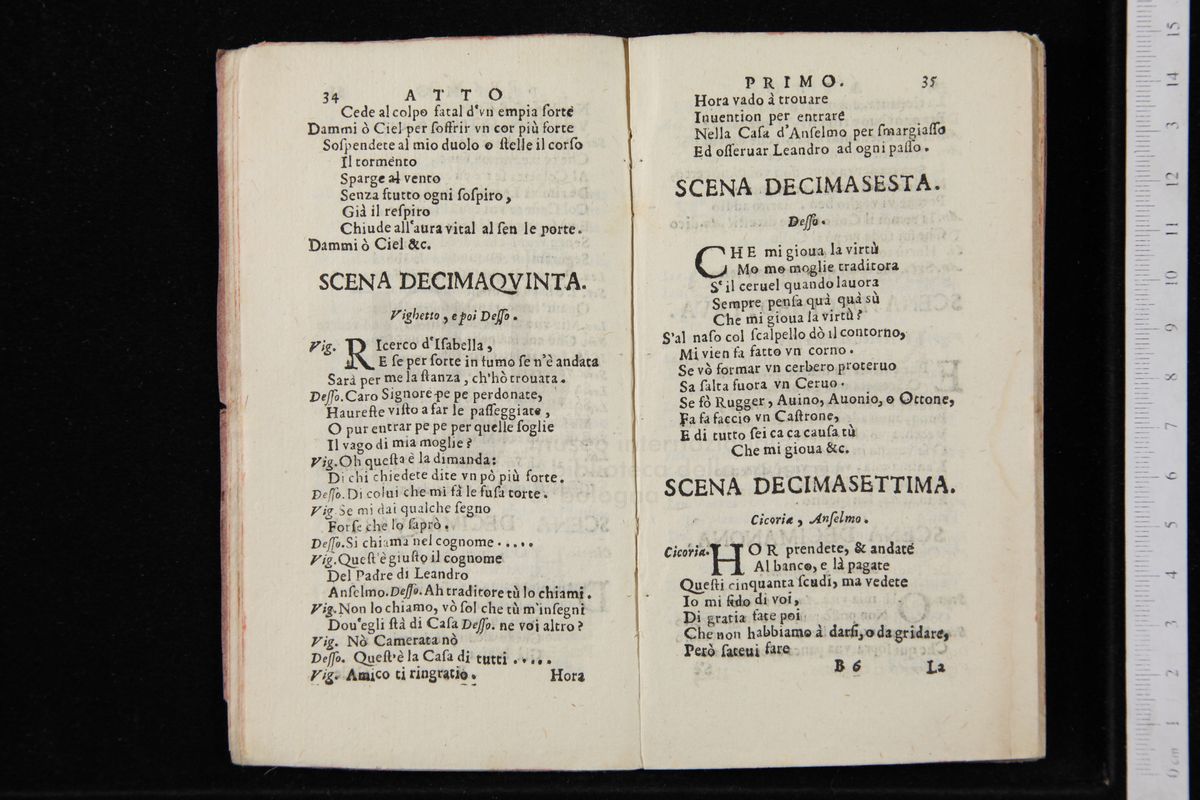 34 ATTO
Cede al colpo fatal d'vn empia ſorte
Dammi ò Ciel per ſoffrir vn cor più forte
Soſpendete al mio duolo o ſtelle il corſo
Il tormento
Sparge al vento
Senza frutto ogni ſoſpiro,
Già il reſpiro
Chiude all'aura vital al ſen le porte.
Dammi ò Ciel &c.
SCENA DECIMAQVINTA.
Vighetto, e poi Deſſo.
Vig. RIcerco d'Iſabella,
E ſe per ſorte in fumo ſe n'è andata
Sarà per me la ſtanza, ch'hò trouata.
Deſſo. Caro Signore pe pe perdonate,
Haureſte viſto a far le paſſeggiate,
O pur entrar pe pe per quelle ſoglie
Il vago di mia moglie?
Vig. Oh queſta è la dimanda:
Di chi chiedete dite vn pò più forte.
Deſſo. Di colui che mi fà le fuſa torte.
Vig. Se mi dai qualche ſegno
Forſe che lo ſaprò.
Deſſo. Si chiama nel cognome .....
Vig. Queſt'è giuſto il cognome
Del Padre di Leandro
Anſelmo. Deſſo. Ah traditore tù lo chiami.
Vig. Non lo chiamo, vò ſol che tù m'inſegni
Dou'egli ſtà di Caſa Deſſo. ne voi altro?
Vig. Nò Camerata nò
Deſſo. Queſt'è la Caſa di tutti .....
Vig. Amico ti ringratio. Hora
PRIMO. 35
Hora vado à trouare
Inuention per entrare
Nella Caſa d'Anſelmo per ſmargiaſſo
Ed oſſeruar Leandro ad ogni paſſo.
SCENA DECIMASESTA.
Deſſo.
CHE mi gioua la virtù
Mo mo moglie traditora
S'il ceruel quando lauora
Sempre penſa quà quà sù
Che mi gioua la virtù?
S'al naſo col ſcalpello dò il contorno,
Mi vien fa fatto vn corno.
Se vò formar vn cerbero proteruo
Sa ſalta fuora vn Ceruo.
Se fò Rugger, Auino, Auonio, o Ottone,
Fa fa faccio vn Caſtrone,
E di tutto ſei ca ca cauſa tù
Che mi gioua &c.
SCENA DECIMASETTIMA.
Cicoria, Anſelmo.
Cicoria. HOR prendete, & andate
Al banco, e là pagate
Queſti cinquanta ſcudi, ma vedete
Io mi fido di voi,
Di gratia fate poi
Che non habbiamo à darſi, o da gridare,
Però fateui fare
B 6 La